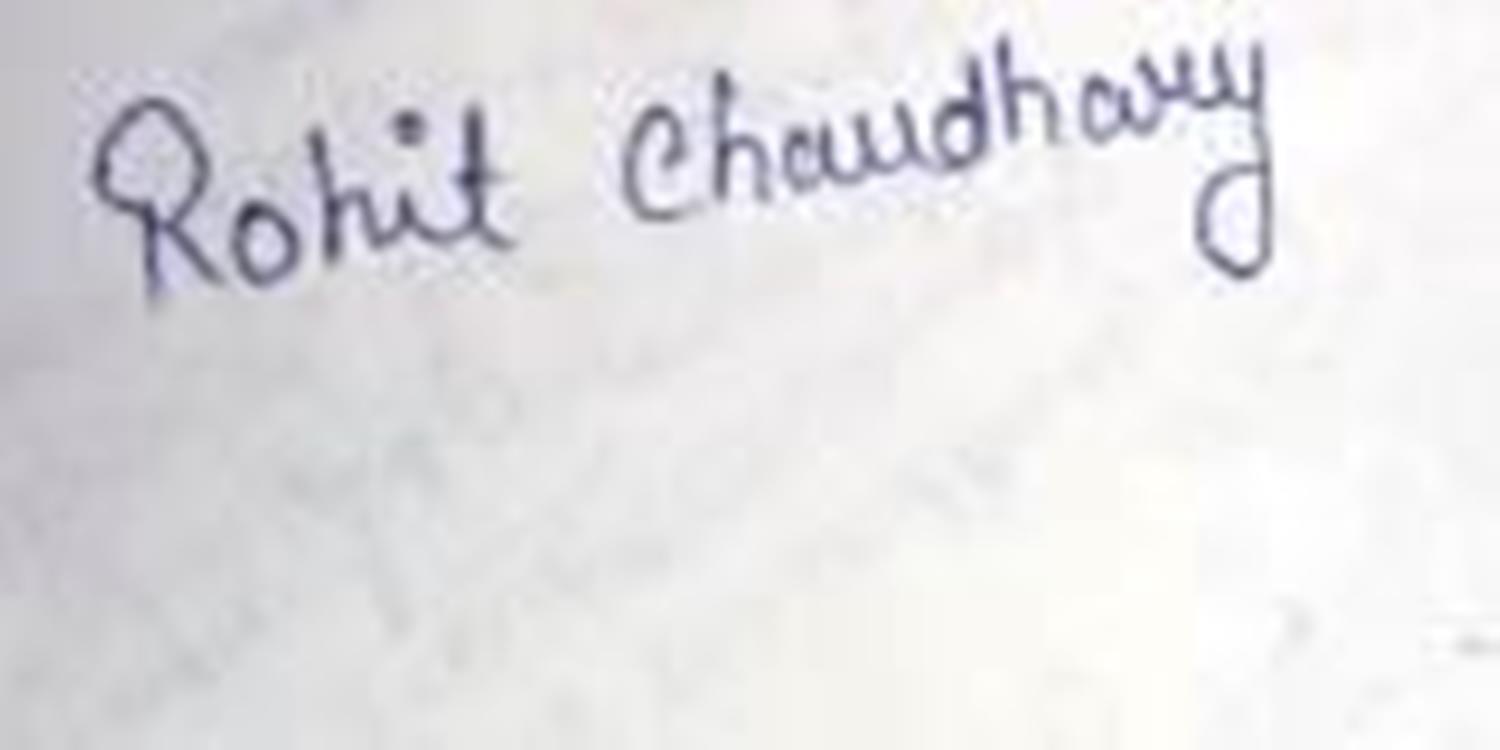 Rohit Chaudhary